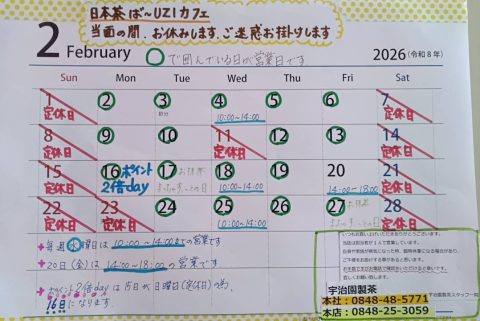 日本茶ば～UZIカフェ
当面の間、お休みします。ご迷惑お掛けします
2 February 2026 (令和8年)
○で囲んでいる日が営業日です
Sun Mon Tue Wed Thu Fri Sat
1 2 3 4 5 6 7
定休日 節分 10:00~14:00 定休日
8 9 10 11 12 13 14
定休日 定休日 定休日
15 16 ポイント 17 18 19 20 21
定休日 2倍day 10:00~14:00 14:00~18:00 定休日
22 23 24 25 26 27 28
定休日 定休日 10:00~14:00 定休日
毎週水曜日は10:00~14:00までの営業です
20日(金)は14:00~18:00の営業です
ポイント2倍dayは15日が日曜日(定休日)の為、
16日になります。
いつもお買い上げいただきありがとうございます。
お手数で
宇治園製茶
本社：0848-48-5771
本店：0848-25-3059